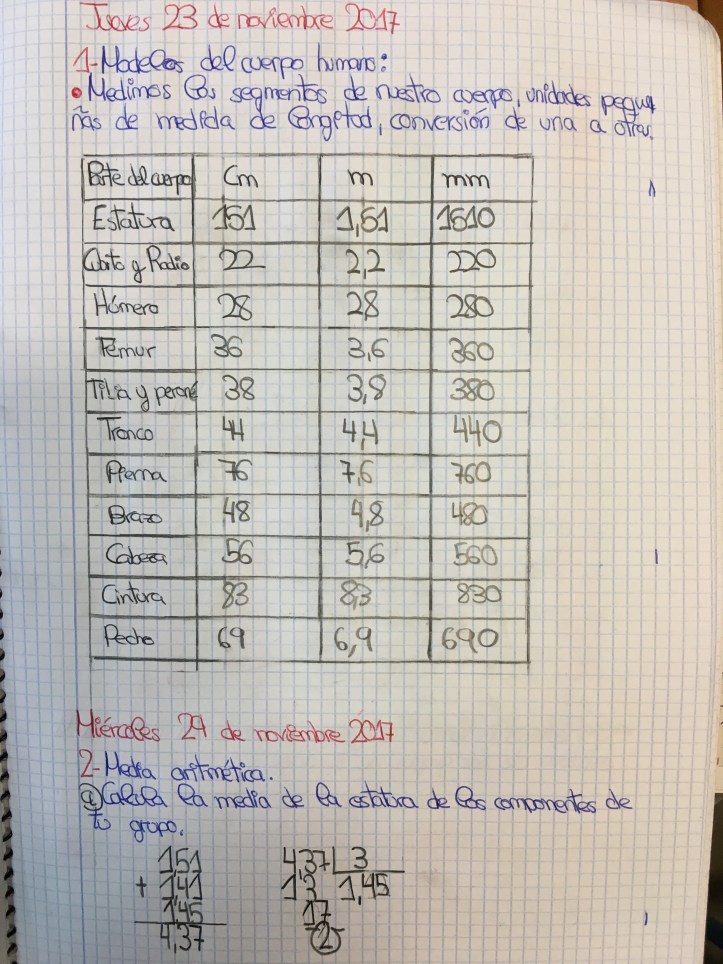 Jueves 23 de noviembre 2017
1-Modelos del cuerpo humano:
• Medimos los segmentos de nuestro cuerpo, unidades peque
ñas de medida de longitud, conversión de una a otra.
Parte del cuerpo Cm m mm
Estatura 151 1,51 1510
Cubito y Radio 22 2,2 220
Húmero 28 28 280
Femur 36 3,6 360
Tibia y peroné 38 3,8 380
Tronco 44 4,4 440
Pierna 76 7,6 760
Brazo 48 4,8 480
Cabeza 56 5,6 560
Cintura 83 8,3 830
Pecho 69 6,9 690
Miércoles 29 de noviembre 2017
2-Media aritmética.
a) Calcula la media de la estatura de los componentes de
tu grupo.
1,51 4,37 | 3
+ 1,41 13 1,45
1,45 17
4,37 2